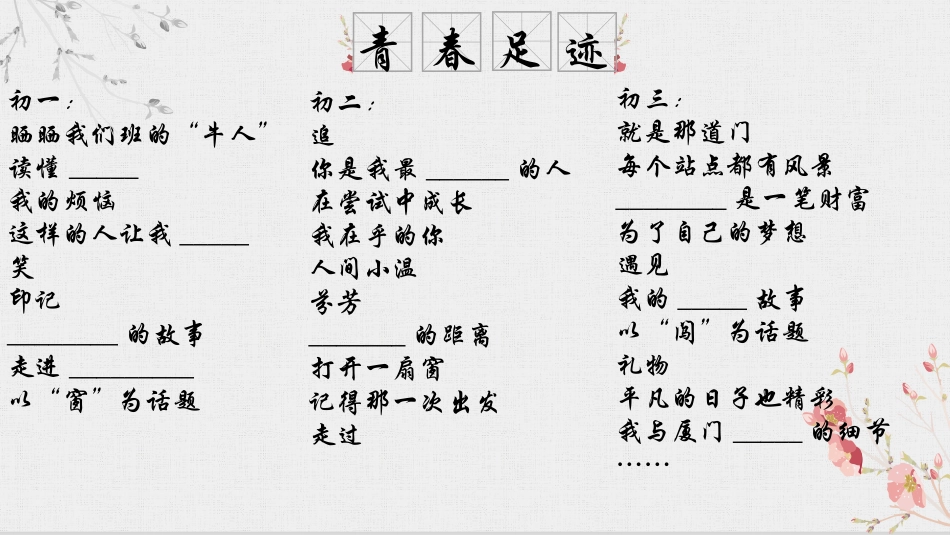 青春足迹
初一：
晒晒我们班的“牛人”
读懂_____
我的烦恼
这样的人让我_____
笑
印记
________的故事
走进_________
以“窗”为话题
初二：
追
你是我最______的人
在尝试中成长
我在乎的你
人间小温
芬芳
_______的距离
打开一扇窗
记得那一次出发
走过
初三：
就是那道门
每个站点都有风景
________是一笔财富
为了自己的梦想
遇见
我的_____故事
以“闯”为话题
礼物
平凡的日子也精彩
我与厦门_____的细节
……